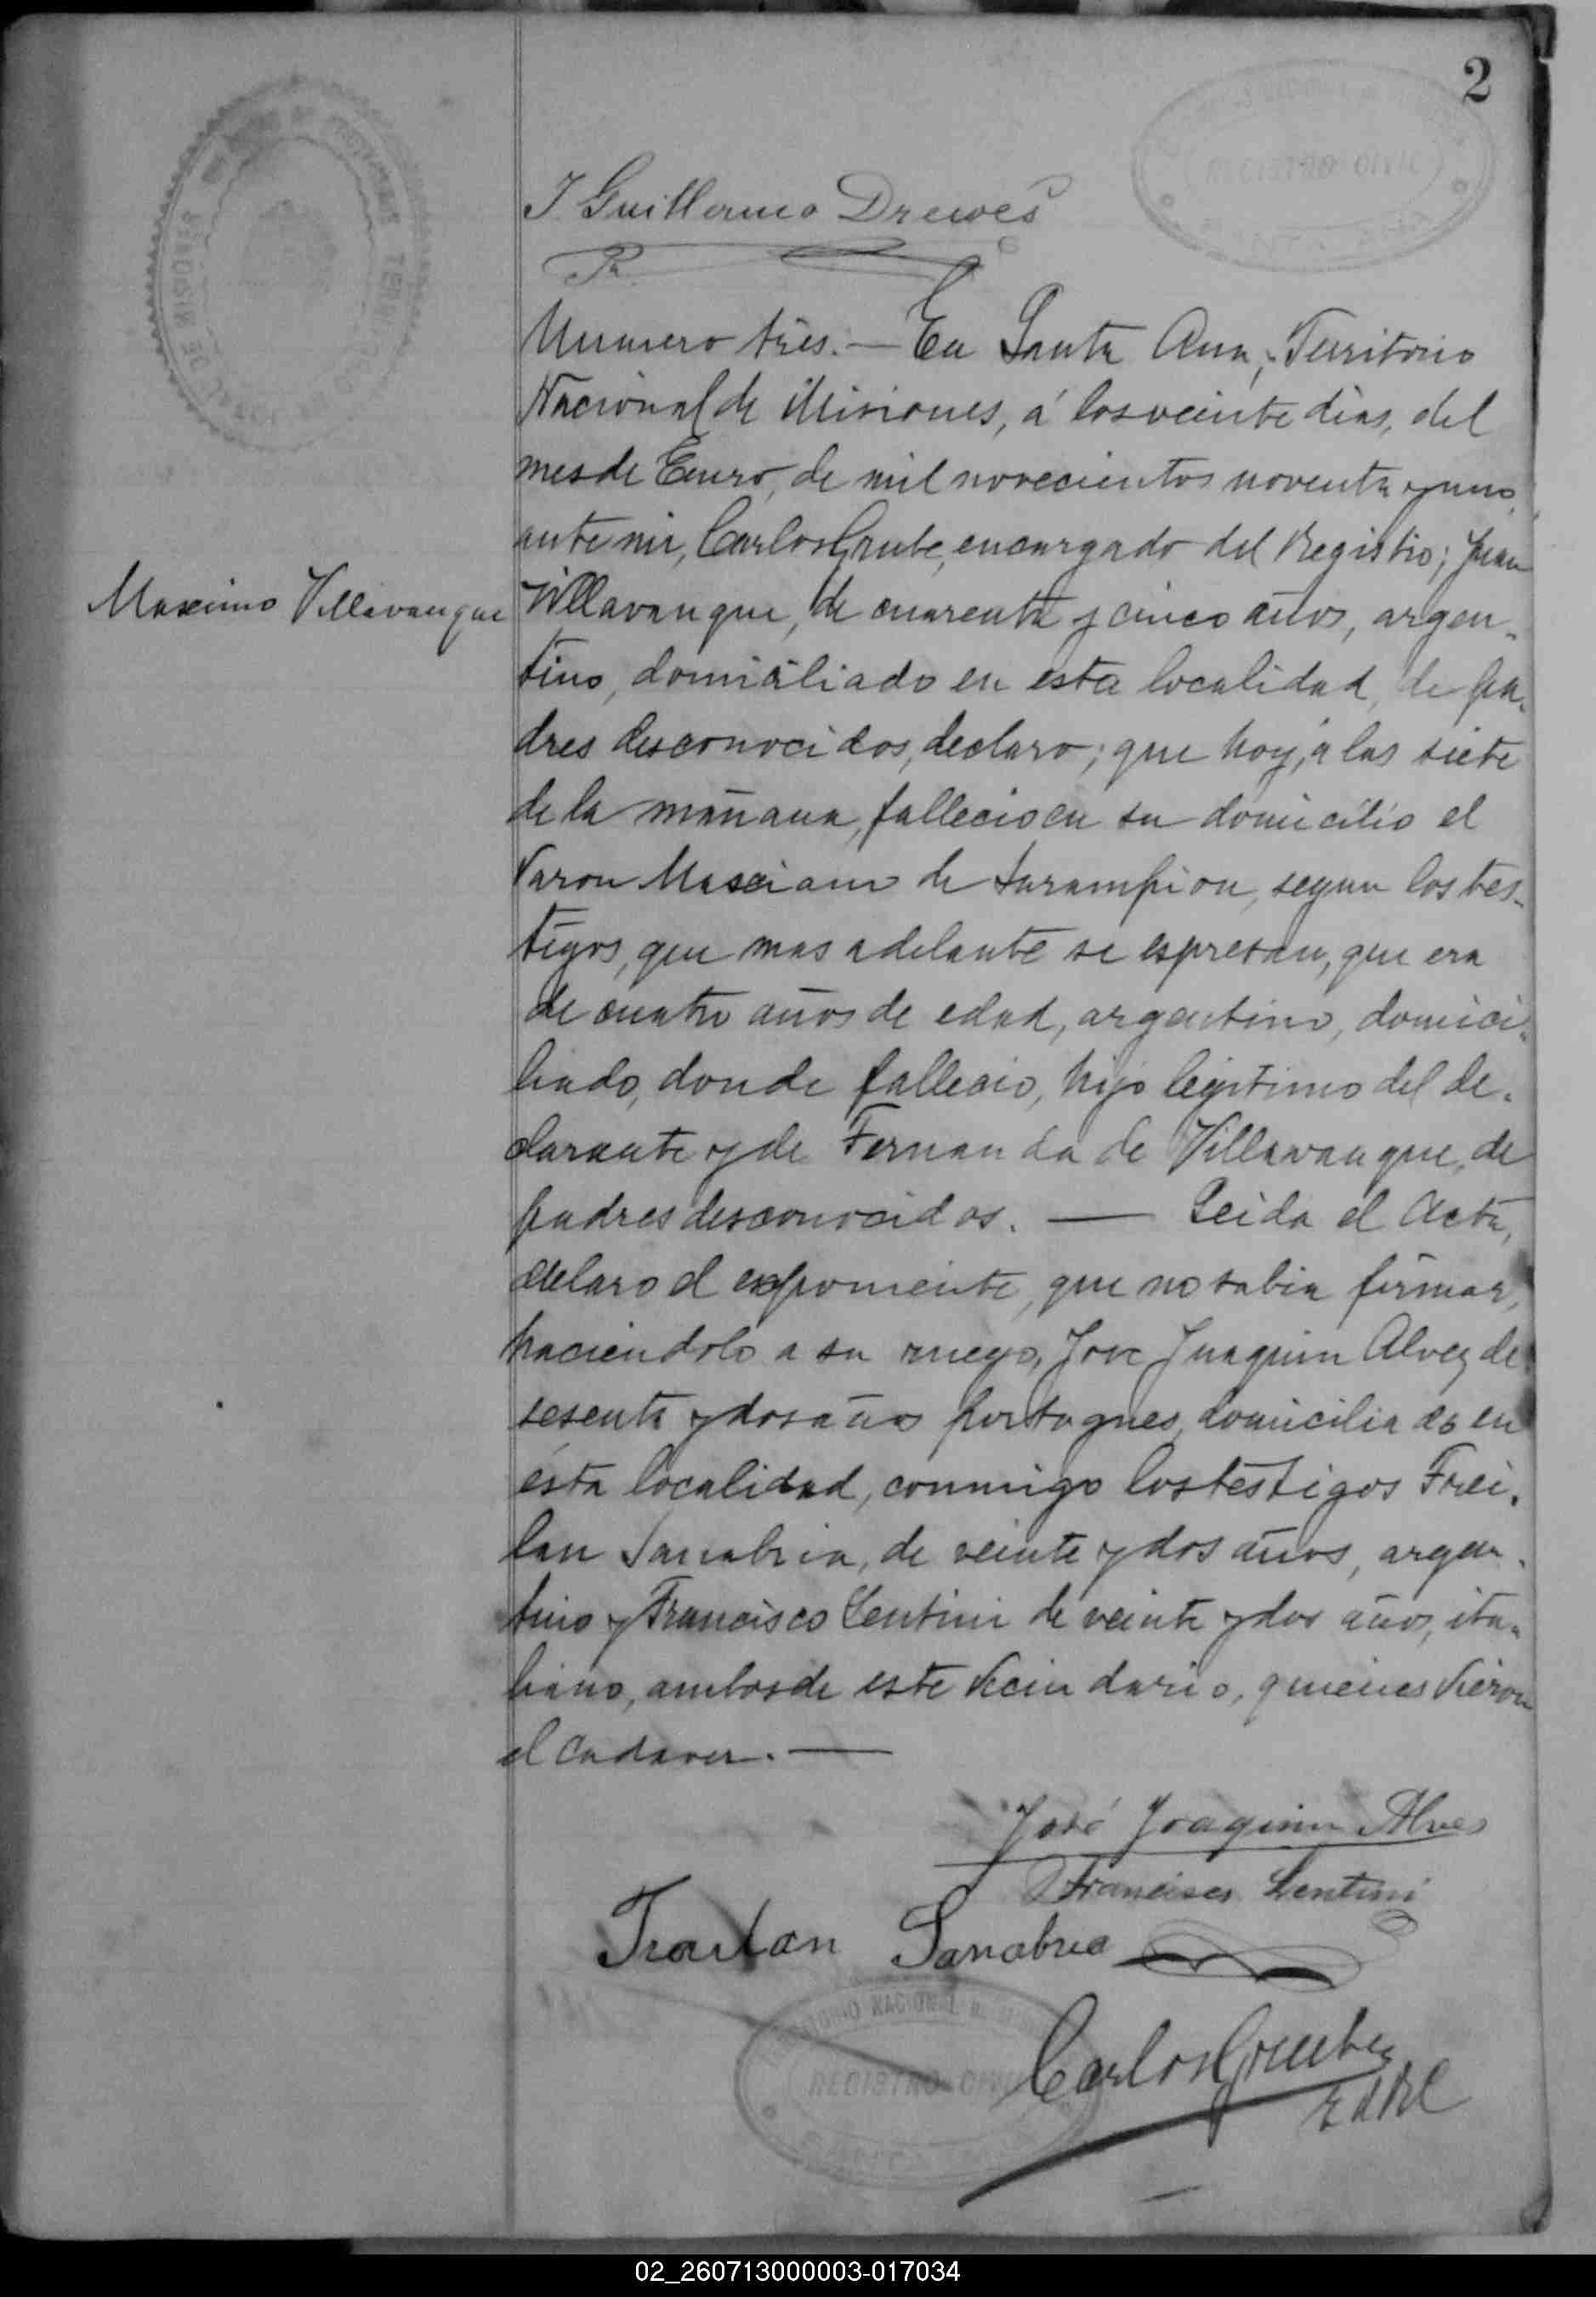 2
REGISTRO CIVIL
J Guillermo Drewes
Numero tres.— En Santa Ana, Territorio
Nacional de Misiones, á los veinte dias, del
mes de Enero, de mil novecientos noventa y uno,
ante mi, Carlos Grube, encargado del Registro; Juan
Maximo Villavanque
Villavanque, de cuarenta y cinco años, argen-
tino, domiciliado en esta localidad, de pa-
dres desconocidos, declaro; que hoy, á las siete
de la mañana, fallecio en su domicilio el
Varon Masciamo de sarampion, segun los tes-
tigos, que mas adelante se espresan, que era
de cuatro años de edad, argentino, domici-
liado, donde fallecio, hijo legitimo del de-
clarante y de Fernanda de Villavanque, de
padres desconocidos. — Leida el Acta,
declaro el exponiente, que no sabia firmar,
haciendolo a su ruego, Jose Juaquin Alvez de
sesenta y dos años portugues, domiciliado en
esta localidad, conmigo los testigos Frei-
lan Sanabria, de veinte y dos años, argen-
tino y Francisco Lentini de veinte y dos años, ita-
liano, ambos de este vecindario, quienes vieron
el cadaver. —
José Joaquim Alves
Francisco Lentini
Sanabria
TERRITORIO NACIONAL DE
REGISTRO CIVIL
Carlos Grube
E d R C
02_260713000003-017034